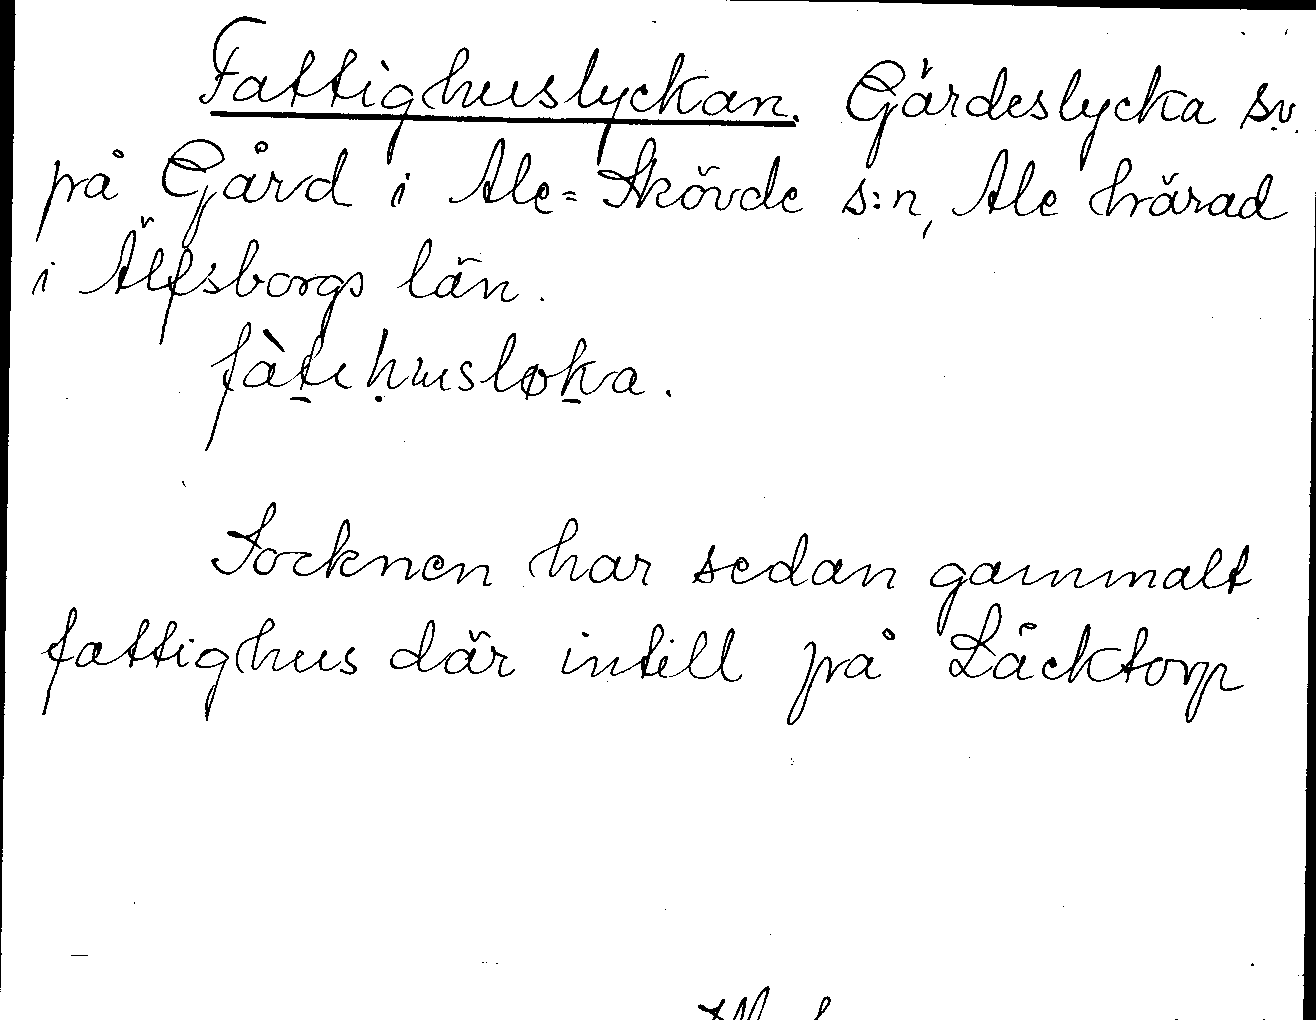 Fattighuslyckan. Gärdeslycka sv.
på Gård i Ale-Skövde s:n, Ale härad
i Älfsborgs län.
fàt̠iḥusløk̠a.
Socknen har sedan gammalt
fattighus där intill på Läcktorp